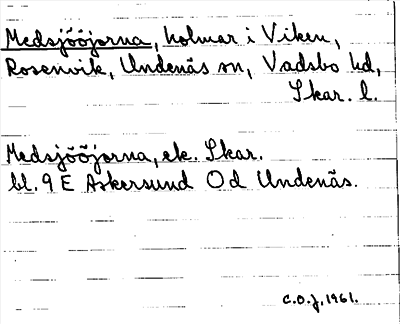 Medsjööjorna, holmar i Viken,
Rosenvik, Undenäs sn, Vadsbo hd,
Skar. l.
Medsjööjorna, ek. Skar.
bl. 9 E Askersund Od Undenäs.
C.O.J, 1961.